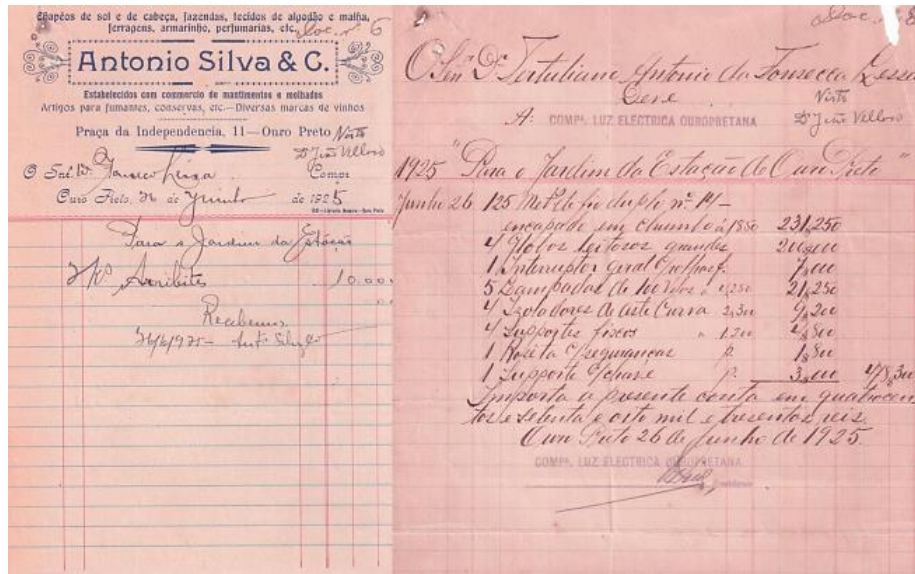 Chapéos de sol e de cabeça, fazendas, tecidos de algodão e malha,
ferragens, armarinho, perfumarias, etc.
Doc. nº 6
Antonio Silva & C.
Estabelecidos com commercio de mantimentos e molhados
Artigos para fumantes, conservas, etc.—Diversas marcas de vinhos
Praça da Independencia, 11—Ouro Preto
Visto
Dr João Velloso
O Snr. Dr. Fonseca Lessa Compr
Ouro Preto, 26 de Junho de 1925
Para o Jardim da Estação
2 Kos Arribites 10.000
Recebemos
26/6/925 — Antº Silva & C
Doc. nº 8
O Snr. Dr. Tertuliano Antonio da Fonseca Lessa
Deve
Visto
A: COMPª. LUZ ELECTRICA OUROPRETANA
Dr João Velloso
1925 "Para o Jardim da Estação de Ouro Preto"
Junho 26 125 Mets de fio duplo nº 14 —
encapado em chumbo á 1850 231,250
4 Globos leitosos grandes 200,000
1 Interruptor geral 7,000
5 Lampadas de 100 Velas a 4,250 21,250
4 Izoladores de aste Curva 2,300 9,200
4 Supportes fixos " 1.200 4,800
1 Rozeta c/seguranças p. 1,800
1 Supporte c/chave p. 3,000 478,300
Importa a presente conta em quatrocen
tos e setenta e oito mil e tresentos reis.
Ouro Preto 26 de Junho de 1925
COMPª. LUZ ELECTRICA OUROPRETANA
Presidente